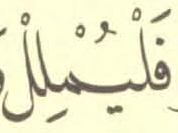 فَلْيُمْلِلْ